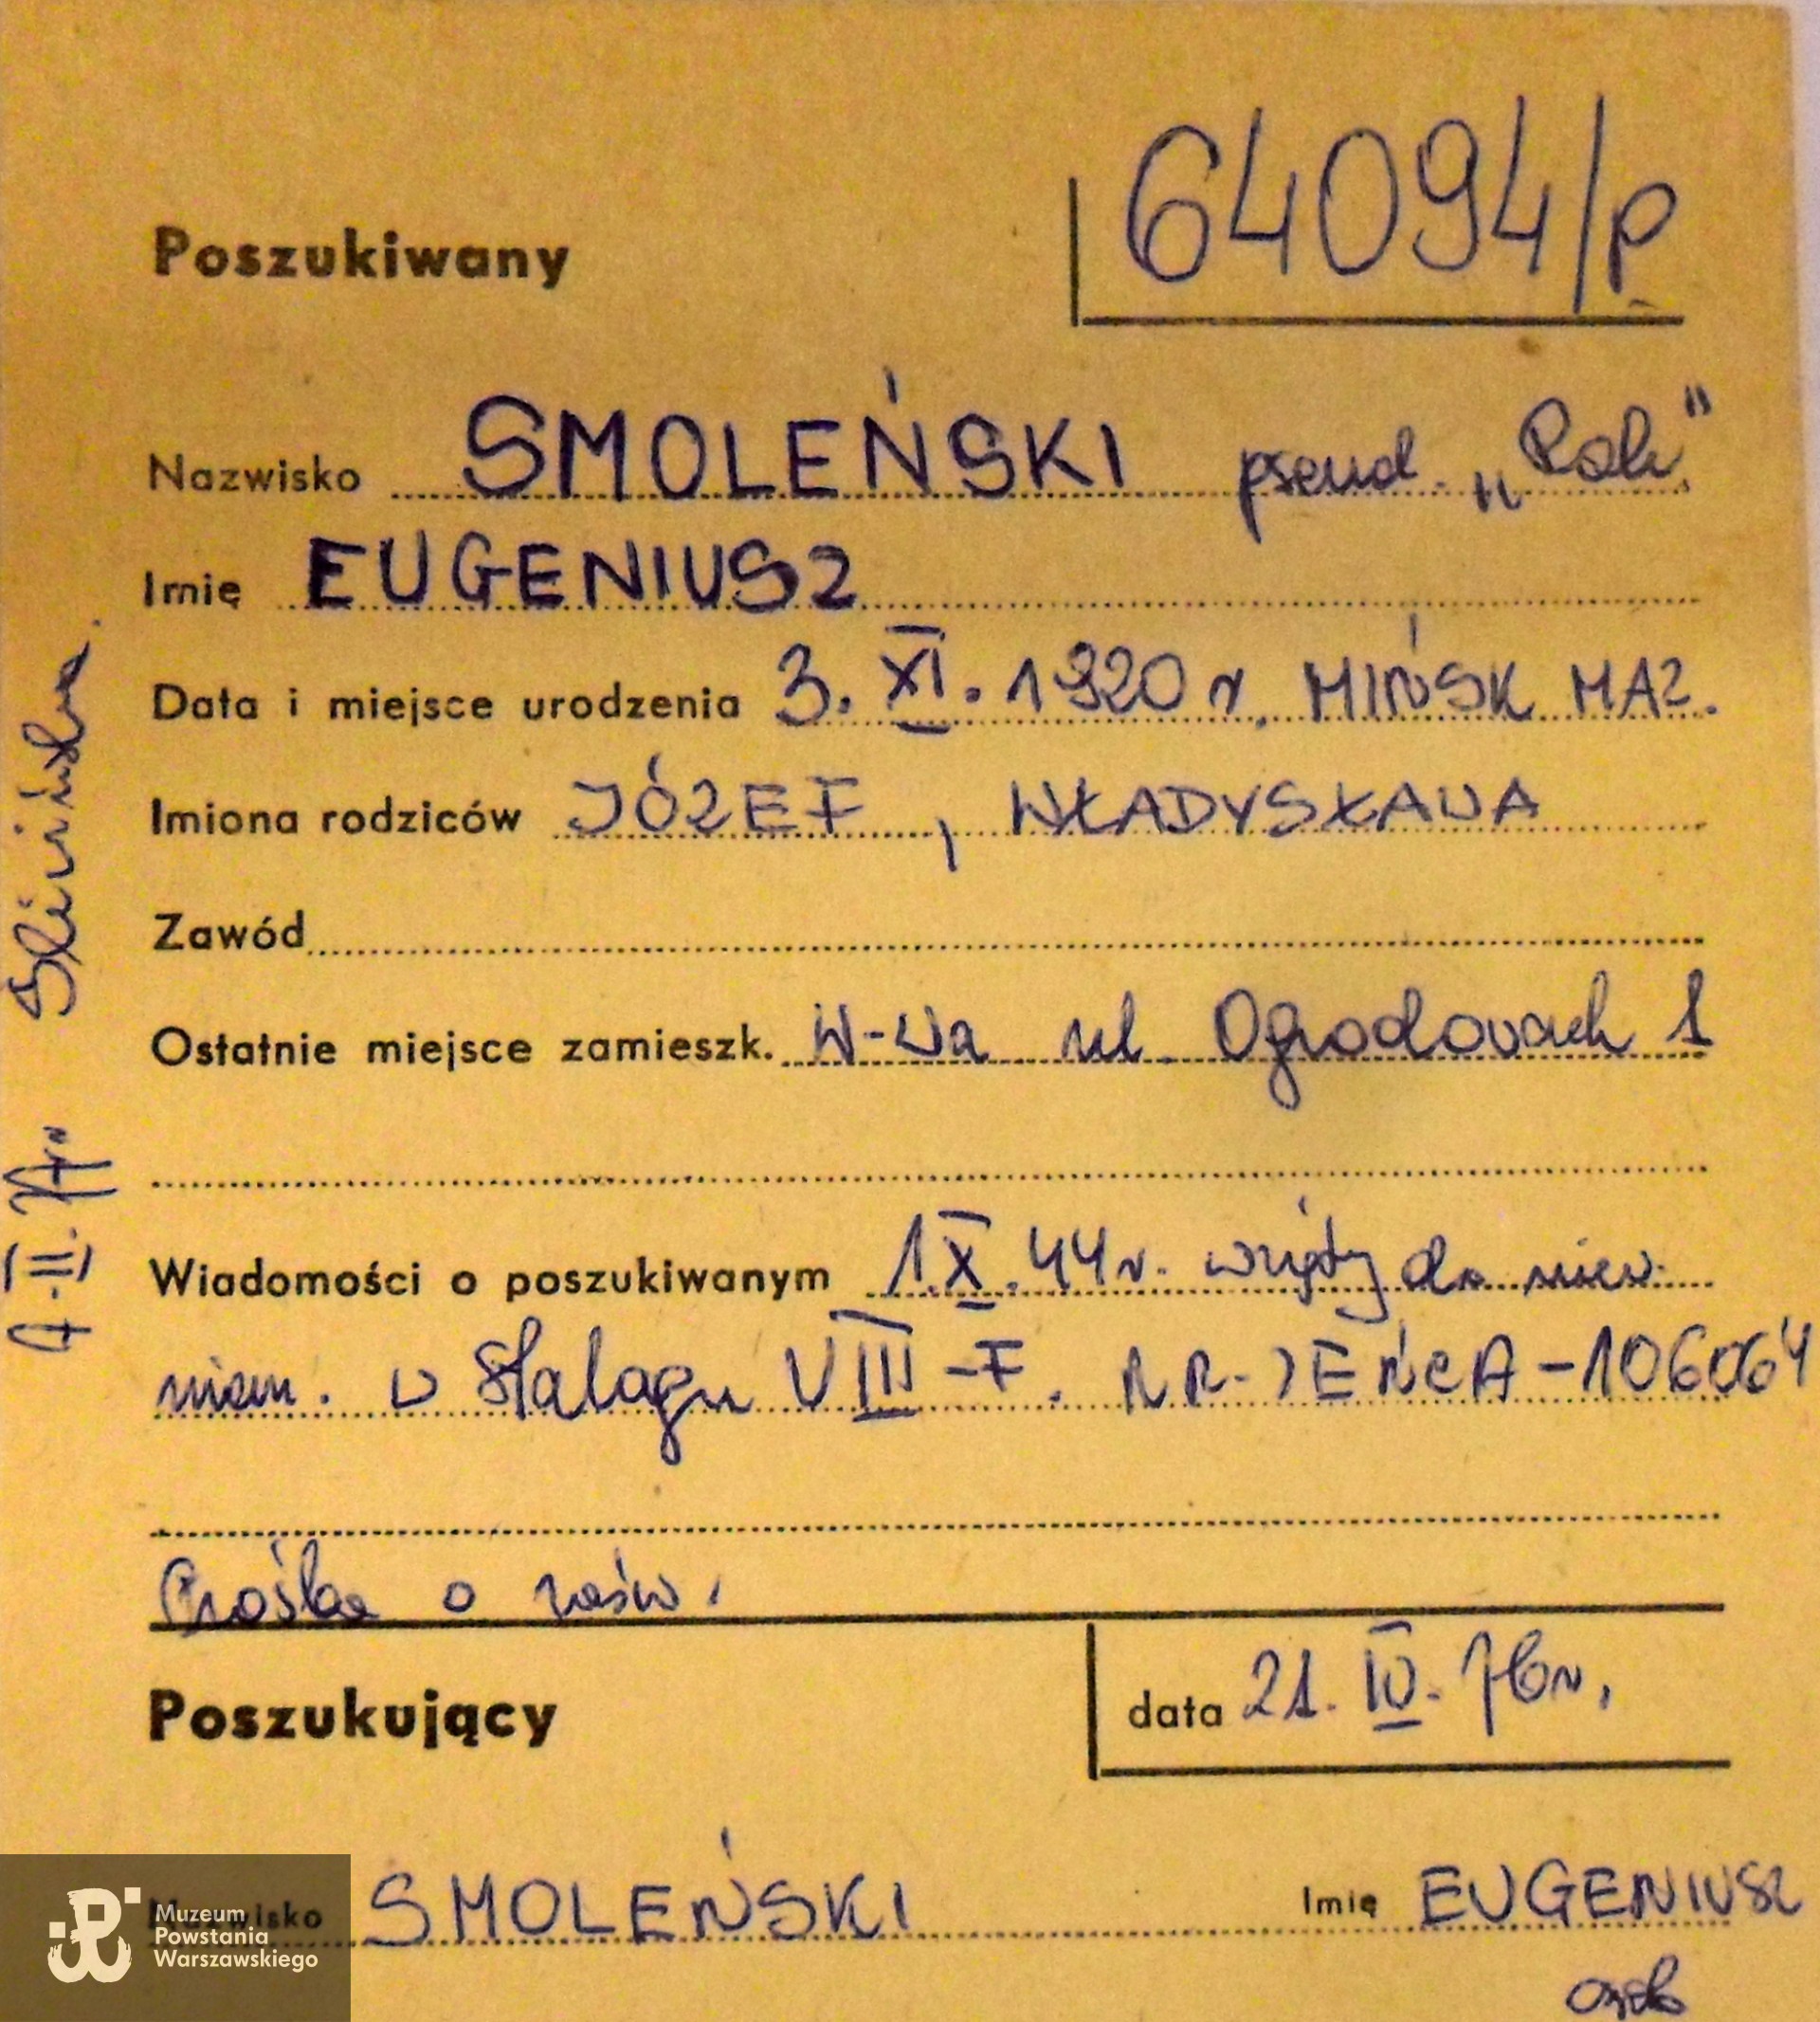 64094/p
Poszukiwany
Nazwisko SMOLEŃSKI pseud. „Rola”
Imię EUGENIUSZ
Data i miejsce urodzenia 3. XI. 1920 r. MIŃSK MAZ.
Imiona rodziców JÓZEF, WŁADYSŁAWA
Zawód
Ostatnie miejsce zamieszk. W-wa ul. Ogrodowa 1
Wiadomości o poszukiwanym 1 X. 44 r. wzięty do niew.
niem. w Stalagu VIII-F. NR-JEŃCA-106064
Prośba o zaśw.
Poszukujący
data 21. IV. 76 r.
Nazwisko SMOLEŃSKI Imię EUGENIUSZ
A-III.
Muzeum
Powstania
Warszawskiego